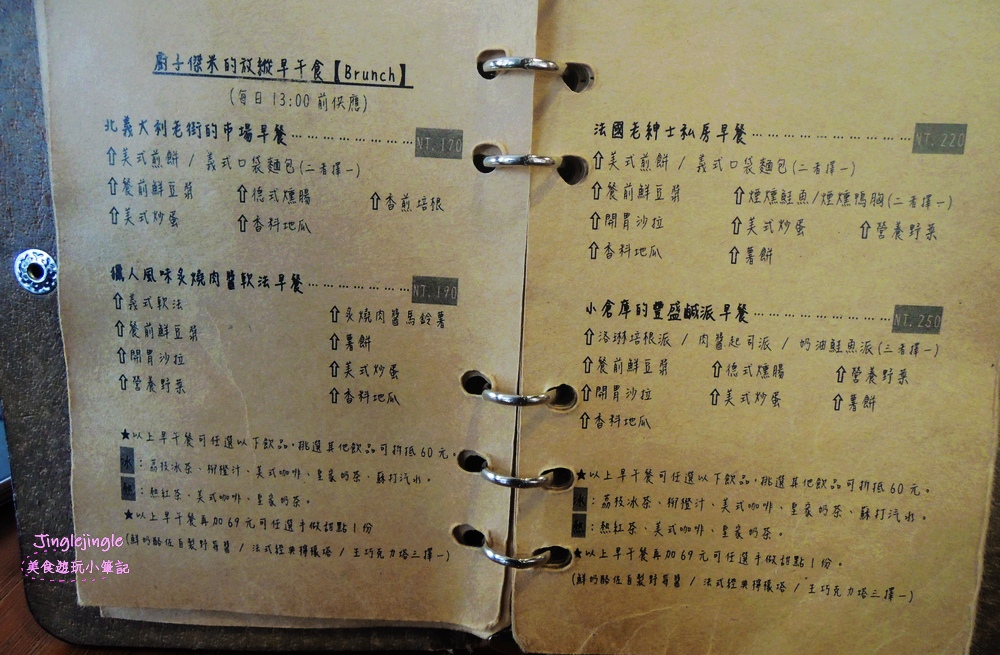 廚子傑米的放縱早午食【Brunch】
(每日 13:00 前供應)
北義大利老街的市場早餐………………… NT.170
⇧美式煎餅 / 義式口袋麵包(二者擇一)
⇧餐前鮮豆漿 ⇧德式燻腸 ⇧香煎培根
⇧美式炒蛋 ⇧香料地瓜
獵人風味炙燒肉醬軟法早餐……………… NT.190
⇧義式軟法 ⇧炙燒肉醬馬鈴薯
⇧餐前鮮豆漿 ⇧薯餅
⇧開胃沙拉 ⇧美式炒蛋
⇧營養野菜 ⇧香料地瓜
★以上早午餐可任選以下飲品,挑選其他飲品可折抵 60 元。
冰:荔枝冰茶、柳橙汁、美式咖啡、皇家奶茶、蘇打汽水。
熱:熱紅茶、美式咖啡、皇家奶茶。
★以上早午餐再加 69 元可任選手做甜點 1 份
(鮮奶酪佐自製野莓醬 / 法式經典檸檬塔 / 王巧克力塔三擇一)
法國老紳士私房早餐……………………… NT.220
⇧美式煎餅 / 義式口袋麵包(二者擇一)
⇧餐前鮮豆漿 ⇧煙燻鮭魚/煙燻鴨胸(二者擇一)
⇧開胃沙拉 ⇧美式炒蛋 ⇧營養野菜
⇧香料地瓜 ⇧薯餅
小倉庫的豐盛鹹派早餐…………………… NT.250
⇧洛琳培根派 / 肉醬起司派 / 奶油鮭魚派(三者擇一)
⇧餐前鮮豆漿 ⇧德式燻腸 ⇧營養野菜
⇧開胃沙拉 ⇧美式炒蛋 ⇧薯餅
⇧香料地瓜
★以上早午餐可任選以下飲品,挑選其他飲品可折抵 60 元。
冰:荔枝冰茶、柳橙汁、美式咖啡、皇家奶茶、蘇打汽水。
熱:熱紅茶、美式咖啡、皇家奶茶。
★以上早午餐再加 69 元可任選手做甜點 1 份。
(鮮奶酪佐自製野莓醬 / 法式經典檸檬塔 / 王巧克力塔三擇一)
Jinglejingle
美食遊玩小筆記